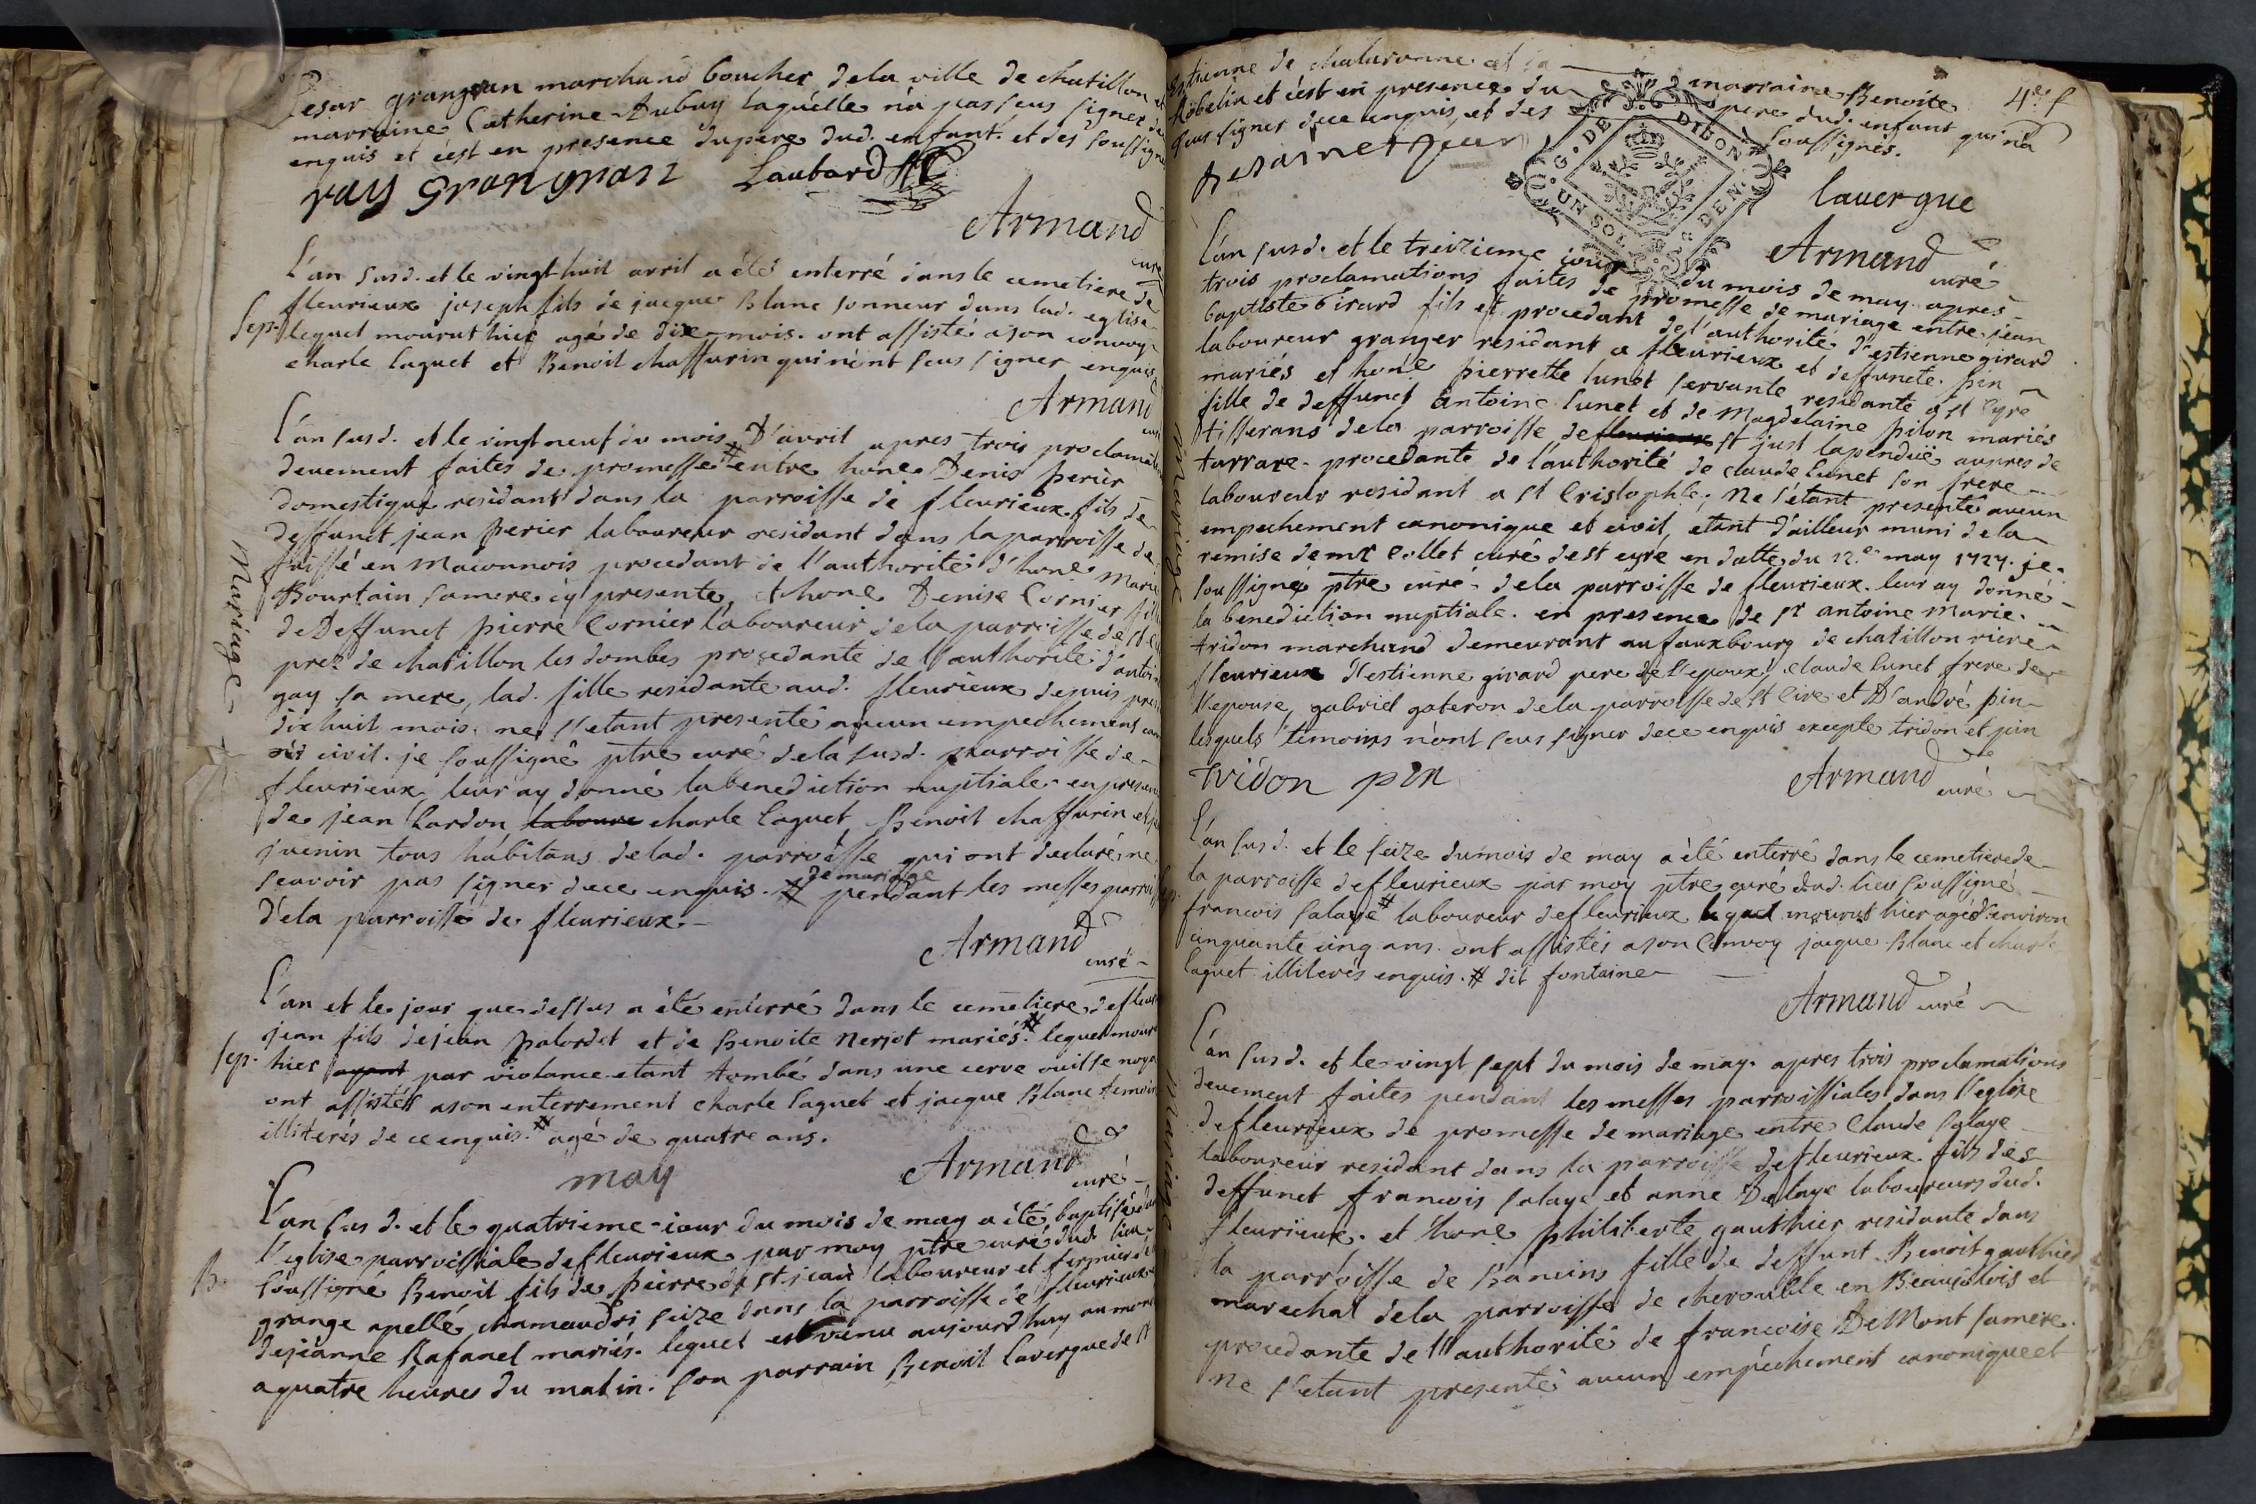 Cesar grangran marchand boucher dela ville de chatillon et
marraine Catherine Dubuy laquelle n'a pas sçus signer de
enquis et c'est en presence du pere dud. enfant. et des soussignes
ray grangran Laubard
Armand
curé
l'an susd. et le vingt huit avril a étés enterré dans le cemetiere de
fleurieux joseph fils de jacque Blanc sonneur dans lad. eglise
Sep. lequel mourut hier agé de dixe mois. ont assisté a son convoy
charle laquet et Benoit chaffurin qui n'ont sçus signer enquis
Armand
curé
L'an susd. et le vingt neuf du mois d'avril apres trois proclamations
deuement faites de promesse # entre hone Denis perier
domestique residant dans la parroisse de fleurieux fils de
deffunct jean perier laboureur residant dans la parroisse de
fuissé en maconnois procedant de l'authorité d'hone Marie
Bourtain sa mere cy presente, et hone Denise Cornier fille
de Deffunct pierre Cornier laboureur dela parroisse de st
prez de chatillon les dombes procedante de l'authorité d'antoinette
gay sa mere, lad. fille residante aud. fleurieux depuis pres
dix huit mois. ne s'etant presenté aucun empechement
civil. je soussigné ptre curé dela susd. parroisse de
fleurieux leur ay donné la benediction nuptiale en presence
de jean Cardon laboure charle laquet, Benoit chaffurin et
juenin tous habitans delad. parroisse qui ont declaré ne
de mariage
scavoir pas signer de ce enquis. # pendant les messes parroissiales
dela parroisse de fleurieux
Mariage
Armand
curé
L'an et le jour que dessus a été enterré dans le cemetiere de fleurieux
jean fils de jean palordet et de Benoite Nerjot mariés # lequel mourut
Sep. hier ayant par violance etant tombé dans une cerve ou il se noya
ont assistés a son enterrement charle laquet et jacque Blanc temoins
illiterés de ce enquis. # agé de quatre ans.
Armand
curé
may
L'an susd. et le quatrieme jour du mois de may a été baptisé dans
l'eglise parroissiale de fleurieux par moy ptre curé dud. lieu
B. soussigné Benoit fils de pierre de st jean laboureur et fermier de la
grange apellé chamaudri size dans la parroisse de fleurieux et
de jeanne Rafanel mariés. lequel est venu aujourdhuy au monde
a quatre heures du matin. son parrain Benoit Lavergue de st
Estienne de chalaronne et sa marraine Benoite
Robelin et c'est en presence du pere dud. enfant qui n'a
sçus signer de ce enquis, et des soussignés.
4e. f
G. DE DIJON
UN SOL DEN.
lauergue
Armand
curé
L'an susd. et le treizieme jour du mois de may apres
trois proclamations faites de promesse de mariage entre jean
baptiste Girard fils et procedant de l'authorité d'estienne girard
laboureur granger residant a fleurieux et deffuncte pin
mariés et hone pierrette lunet servante residante a st Cyre
fille de deffunct antoine lunet et de Magdelaine pilon mariés
tisserans dela parroisse de fleurieux st just lapendüe aupres de
tarrare. procedante de l'authorité de claude lunet son frere
laboureur residant a st Cristophle. Ne s'étant presenté aucun
empechement canonique et civil, etant d'ailleur muni de la
remise de mr Collet curé de st cyre en datte du 12.e may 1727. je
soussigné ptre curé dela parroisse de fleurieux leur ay donné
la benediction nuptiale. en presence de sr antoine Marie
tridon marchand demeurant au fauxbourg de chatillon riere
fleurieux d'estienne girard pere de l'epoux, claude lunet frere de
l'epouse, gabriel gateron dela parroisse de st Cire et d'andré pin
lesquels temoins n'ont sçus signer de ce enquis excepte tridon et pin
mariage
tridon pin
Armand
curé
L'an susd. et le seize du mois de may a été enterré dans le cemetiere de
la parroisse de fleurieux par moy ptre curé dud. lieu soussigné
francois salaye # laboureur de fleurieux lequel mourut hier agé d'environ
cinquante cinq ans. ont assistés a son convoy jacque Blanc et charle
laquet illiterés enquis. # dit fontaine
Armand curé
L'an susd. et le vingt sept du mois de may. apres trois proclamations
deuement faites pendant les messes parroissiales dans l'eglise
de fleurieux de promesse de mariage entre Claude salaye
laboureur residant dans la parroisse de fleurieux. fils de
deffunct francois salaye et anne Delaye laboureurs dud.
fleurieux. et hone philiberte gauthier residante dans
la parroisse de Bancins fille de deffunt Benoit gauthier
marechal dela parroisse de cheroubble en Beaujolois et
procedante de l'authorité de francoise DeMont sa mere.
ne s'etant presenté aucun empechement canonique et
mariage